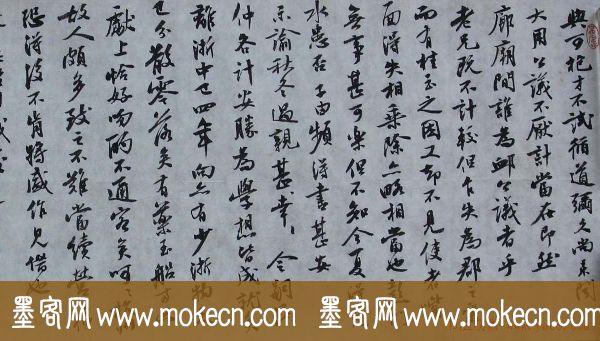 與可抱才不試循道彌久尚未聞
大用公議不厭計當在即然
廊廟間誰為卹公議者乎
老兄既不計較但乍失為郡之
而有桂玉之困又却不見使者
面得失相乘除亦略相當也彭
無事甚可樂但不知今夏得
水患否子由頻得書甚安
示諭秋冬過親甚幸令嗣
仲各計安勝為學想皆成
離浙中已四年向亦有少浙物
已分散零落矣有藥玉船
獻上恰好吻酌不通客矣呵
故人頗多致之不難當續營
恐得後不肯將盛作見借也
墨客网 www.mokecn.com 墨客网 www.mokecn.com